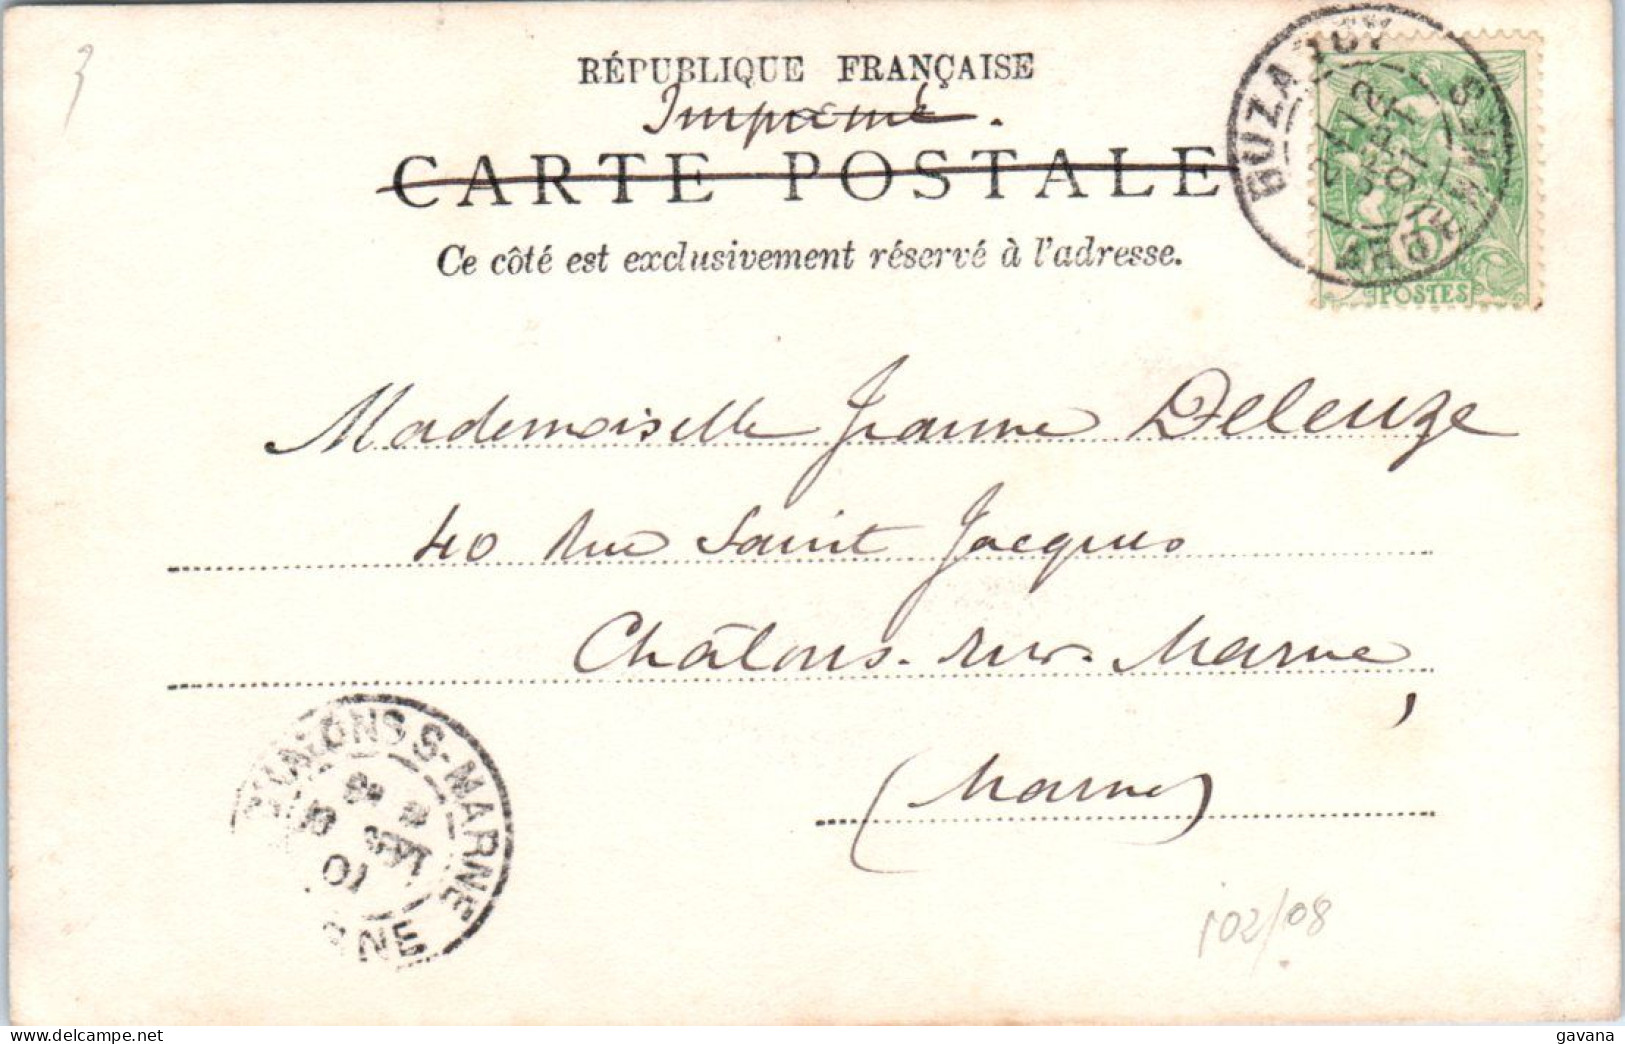 3
RÉPUBLIQUE FRANÇAISE
Imprimé.
CARTE POSTALE
Ce côté est exclusivement réservé à l'adresse.
BUZANCY
ARDENNES
5
POSTES
Mademoiselle Jeanne Deleuze
40 Rue Saint Jacques
Châlons-sur-Marne,
(Marne)
CHALONS-S-MARNE
01
102/08
gavana